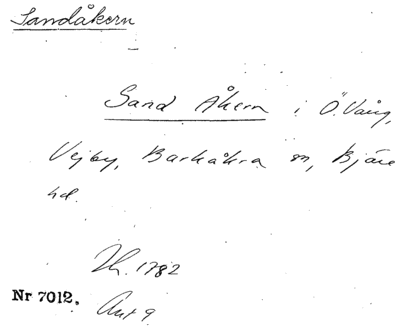 Sandåkern
Sand Åkern i Ö. Vång,
Vejby, Barkåkra sn, Bjäre
hd.
Th. 1782
Nr 7012.
Akt 9